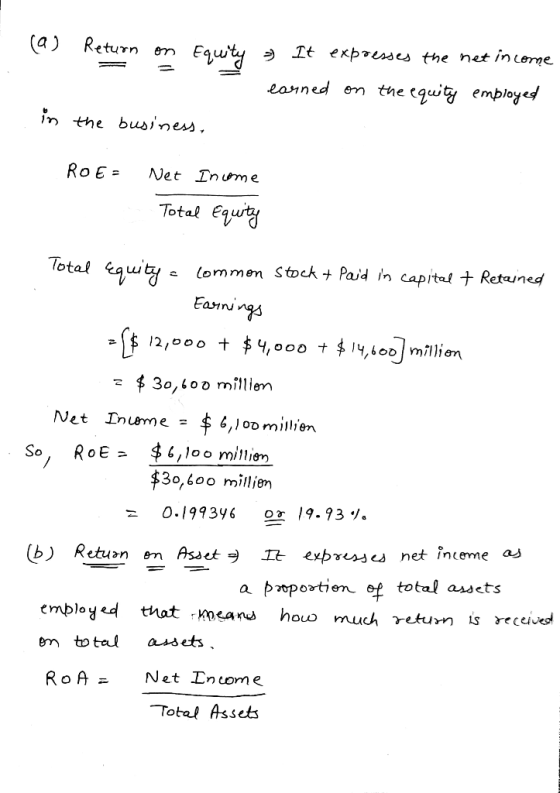 (a) Return on Equity ⇒ It expresses the net income
earned on the equity employed
in the business.
ROE = Net Income
Total Equity
Total Equity = Common Stock + Paid in capital + Retained
Earnings
= [$ 12,000 + $ 4,000 + $ 14,600] million
= $ 30,600 million
Net Income = $ 6,100 million
So, ROE = $6,100 million
$30,600 million
= 0.199346 or 19.93 %.
(b) Return on Asset ⇒ It expresses net income as
a proportion of total assets
employed that means how much return is received
on total assets.
ROA = Net Income
Total Assets